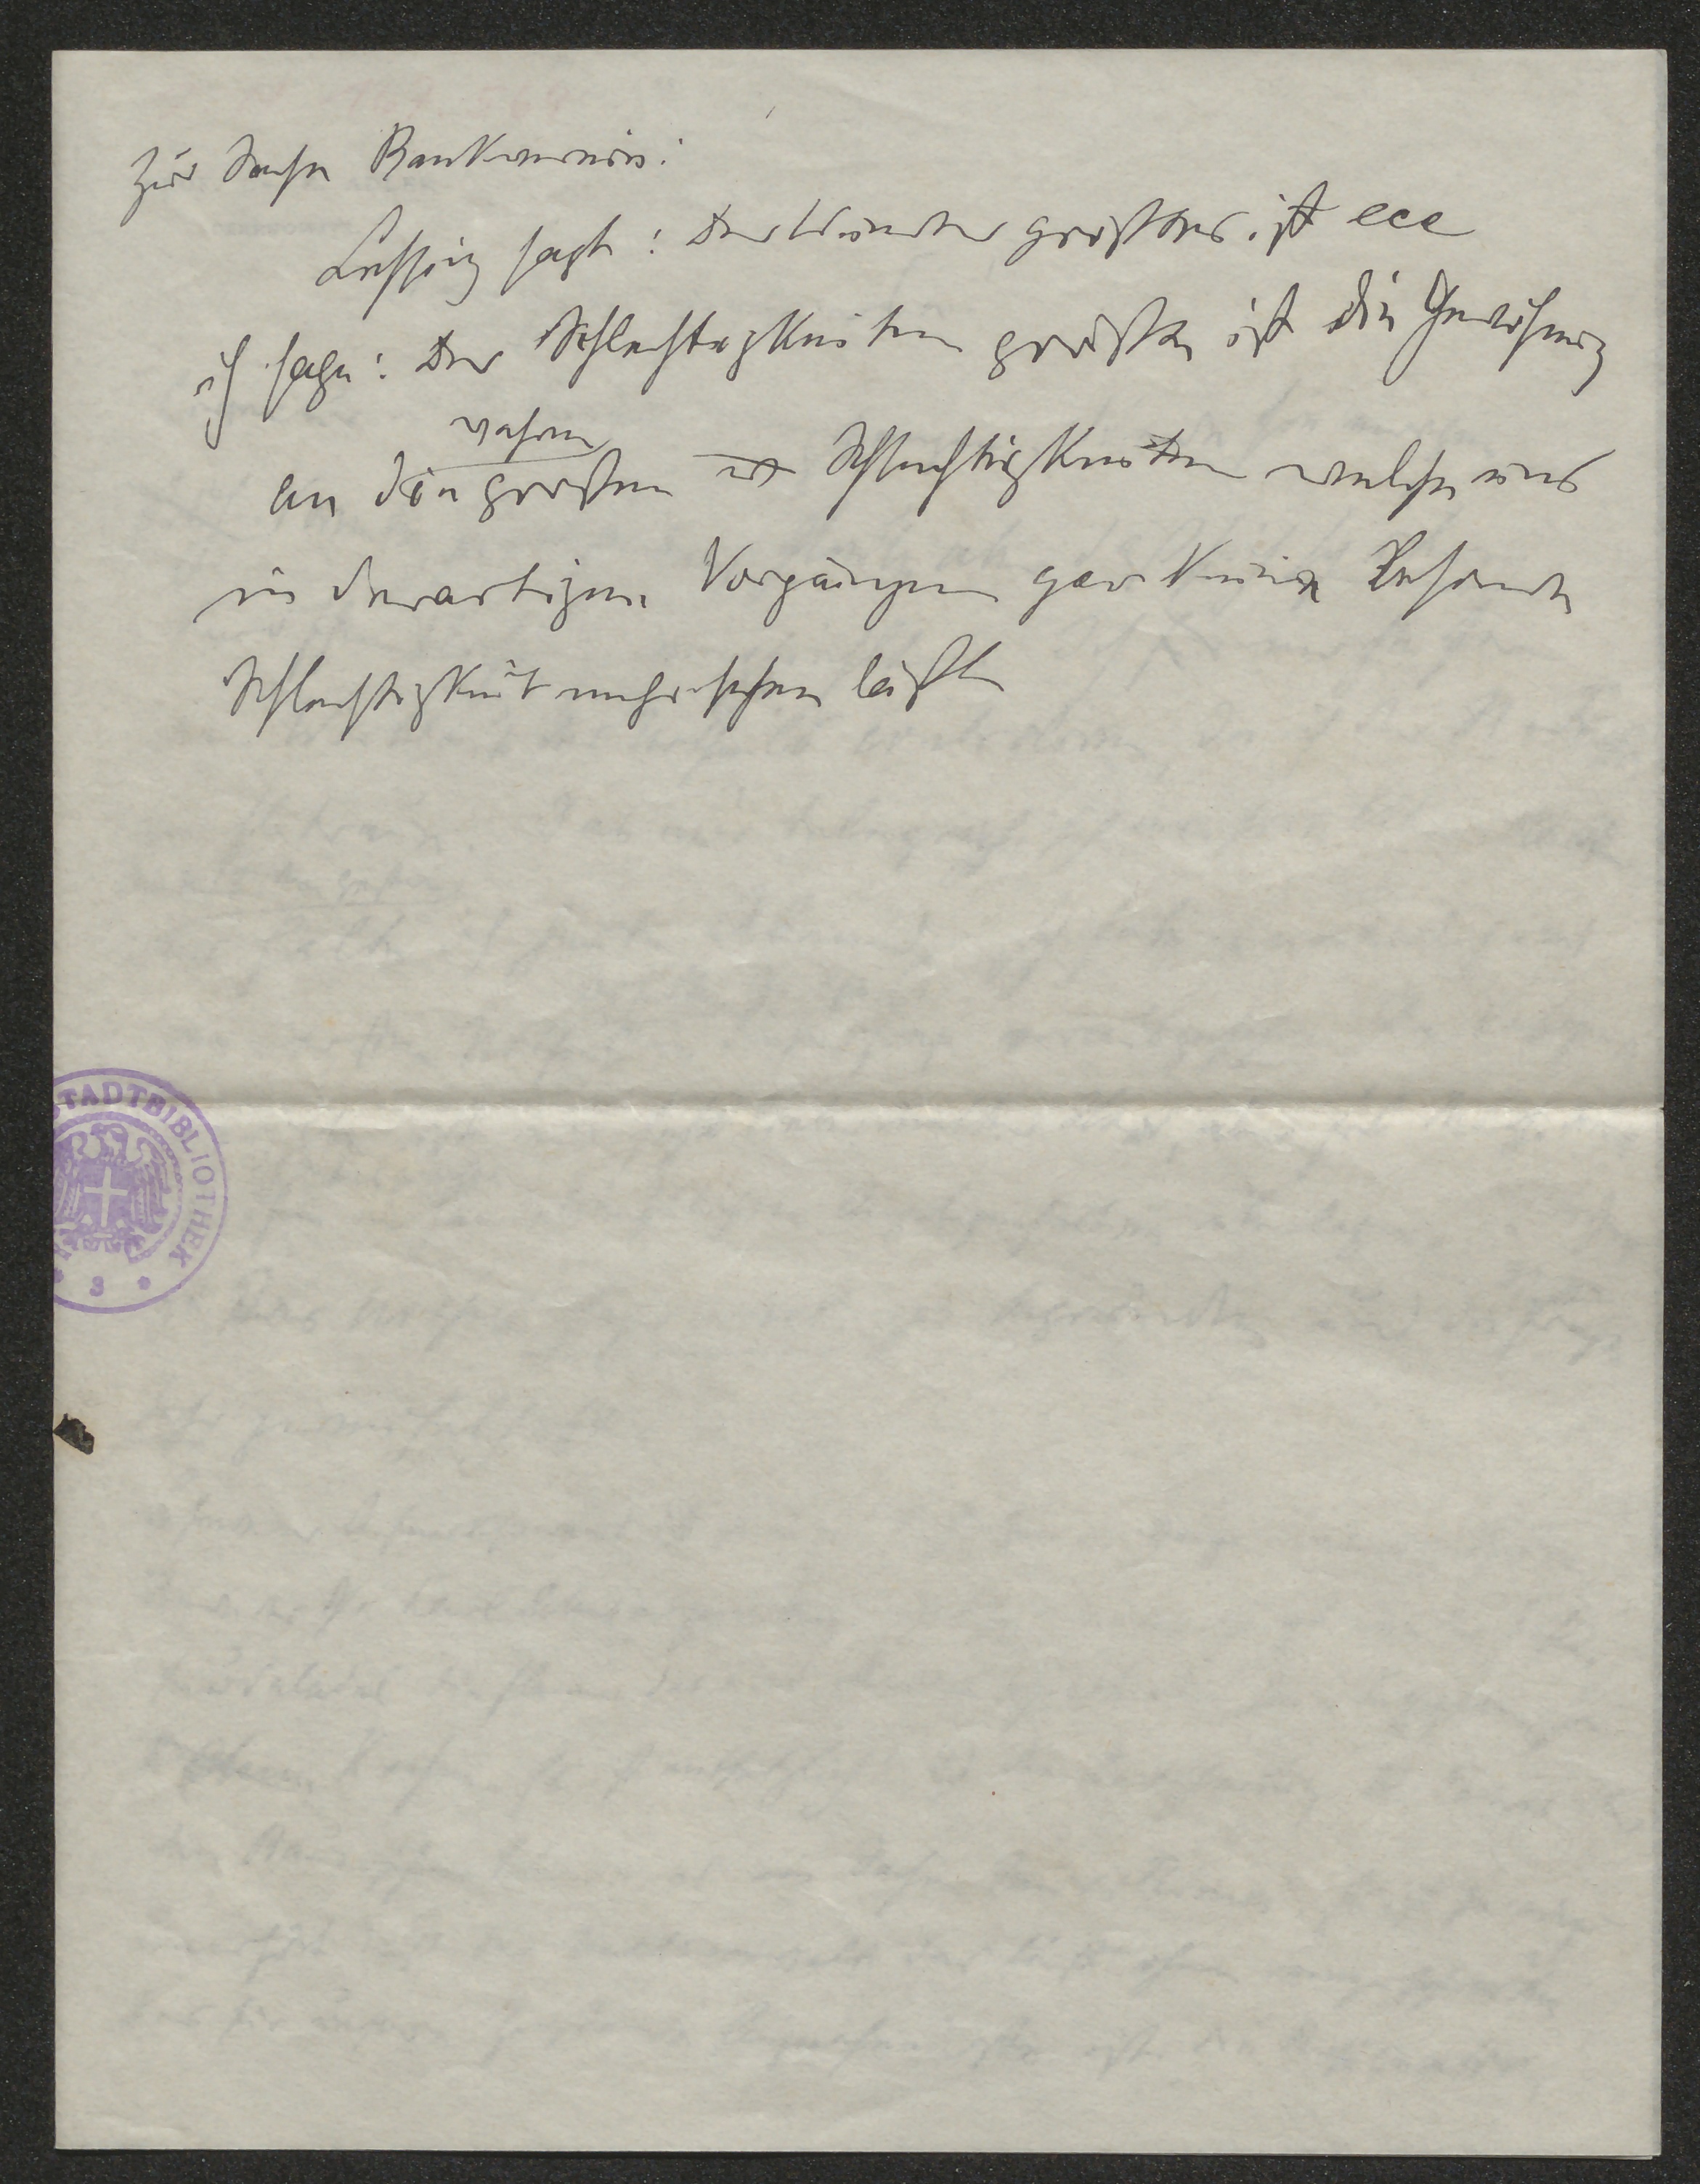 Zur Sache Bankverein:
Lessing sagt: Der Wunder größtes ist ecc
ich sage: Der Schlechtigkeiten größte ist die Gewöhnung
wahren
an die großen Schlechtigkeiten welche uns
in derartigen Vorgängen gar keine
Schlechtigkeit mehr sehen läßt
STADTBIBLIOTHEK
* 3 *